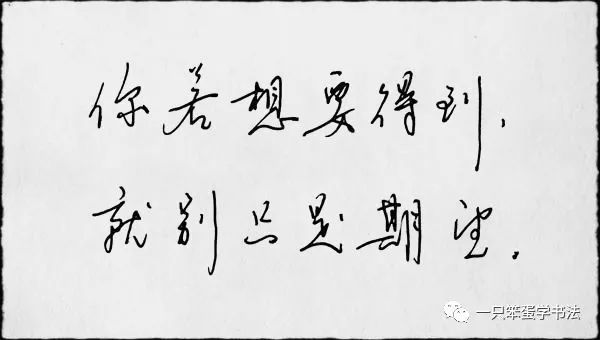 你若想要得到，
就别只是期望。
一只笨蛋学书法